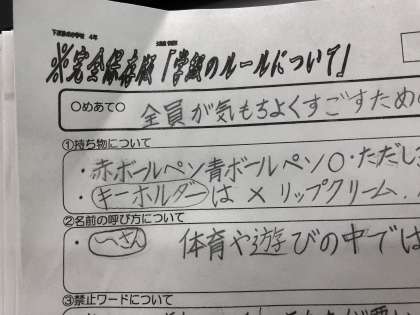 4年
※完全保存版「学級のルールについて」
○めあて○
全員が気もちよくすごすため
①持ち物について
・赤ボールペン青ボールペン○・ただし
・キーホルダーは × リップクリーム
②名前の呼び方について
・〜さん 体育や遊びの中では
③禁止ワードについて